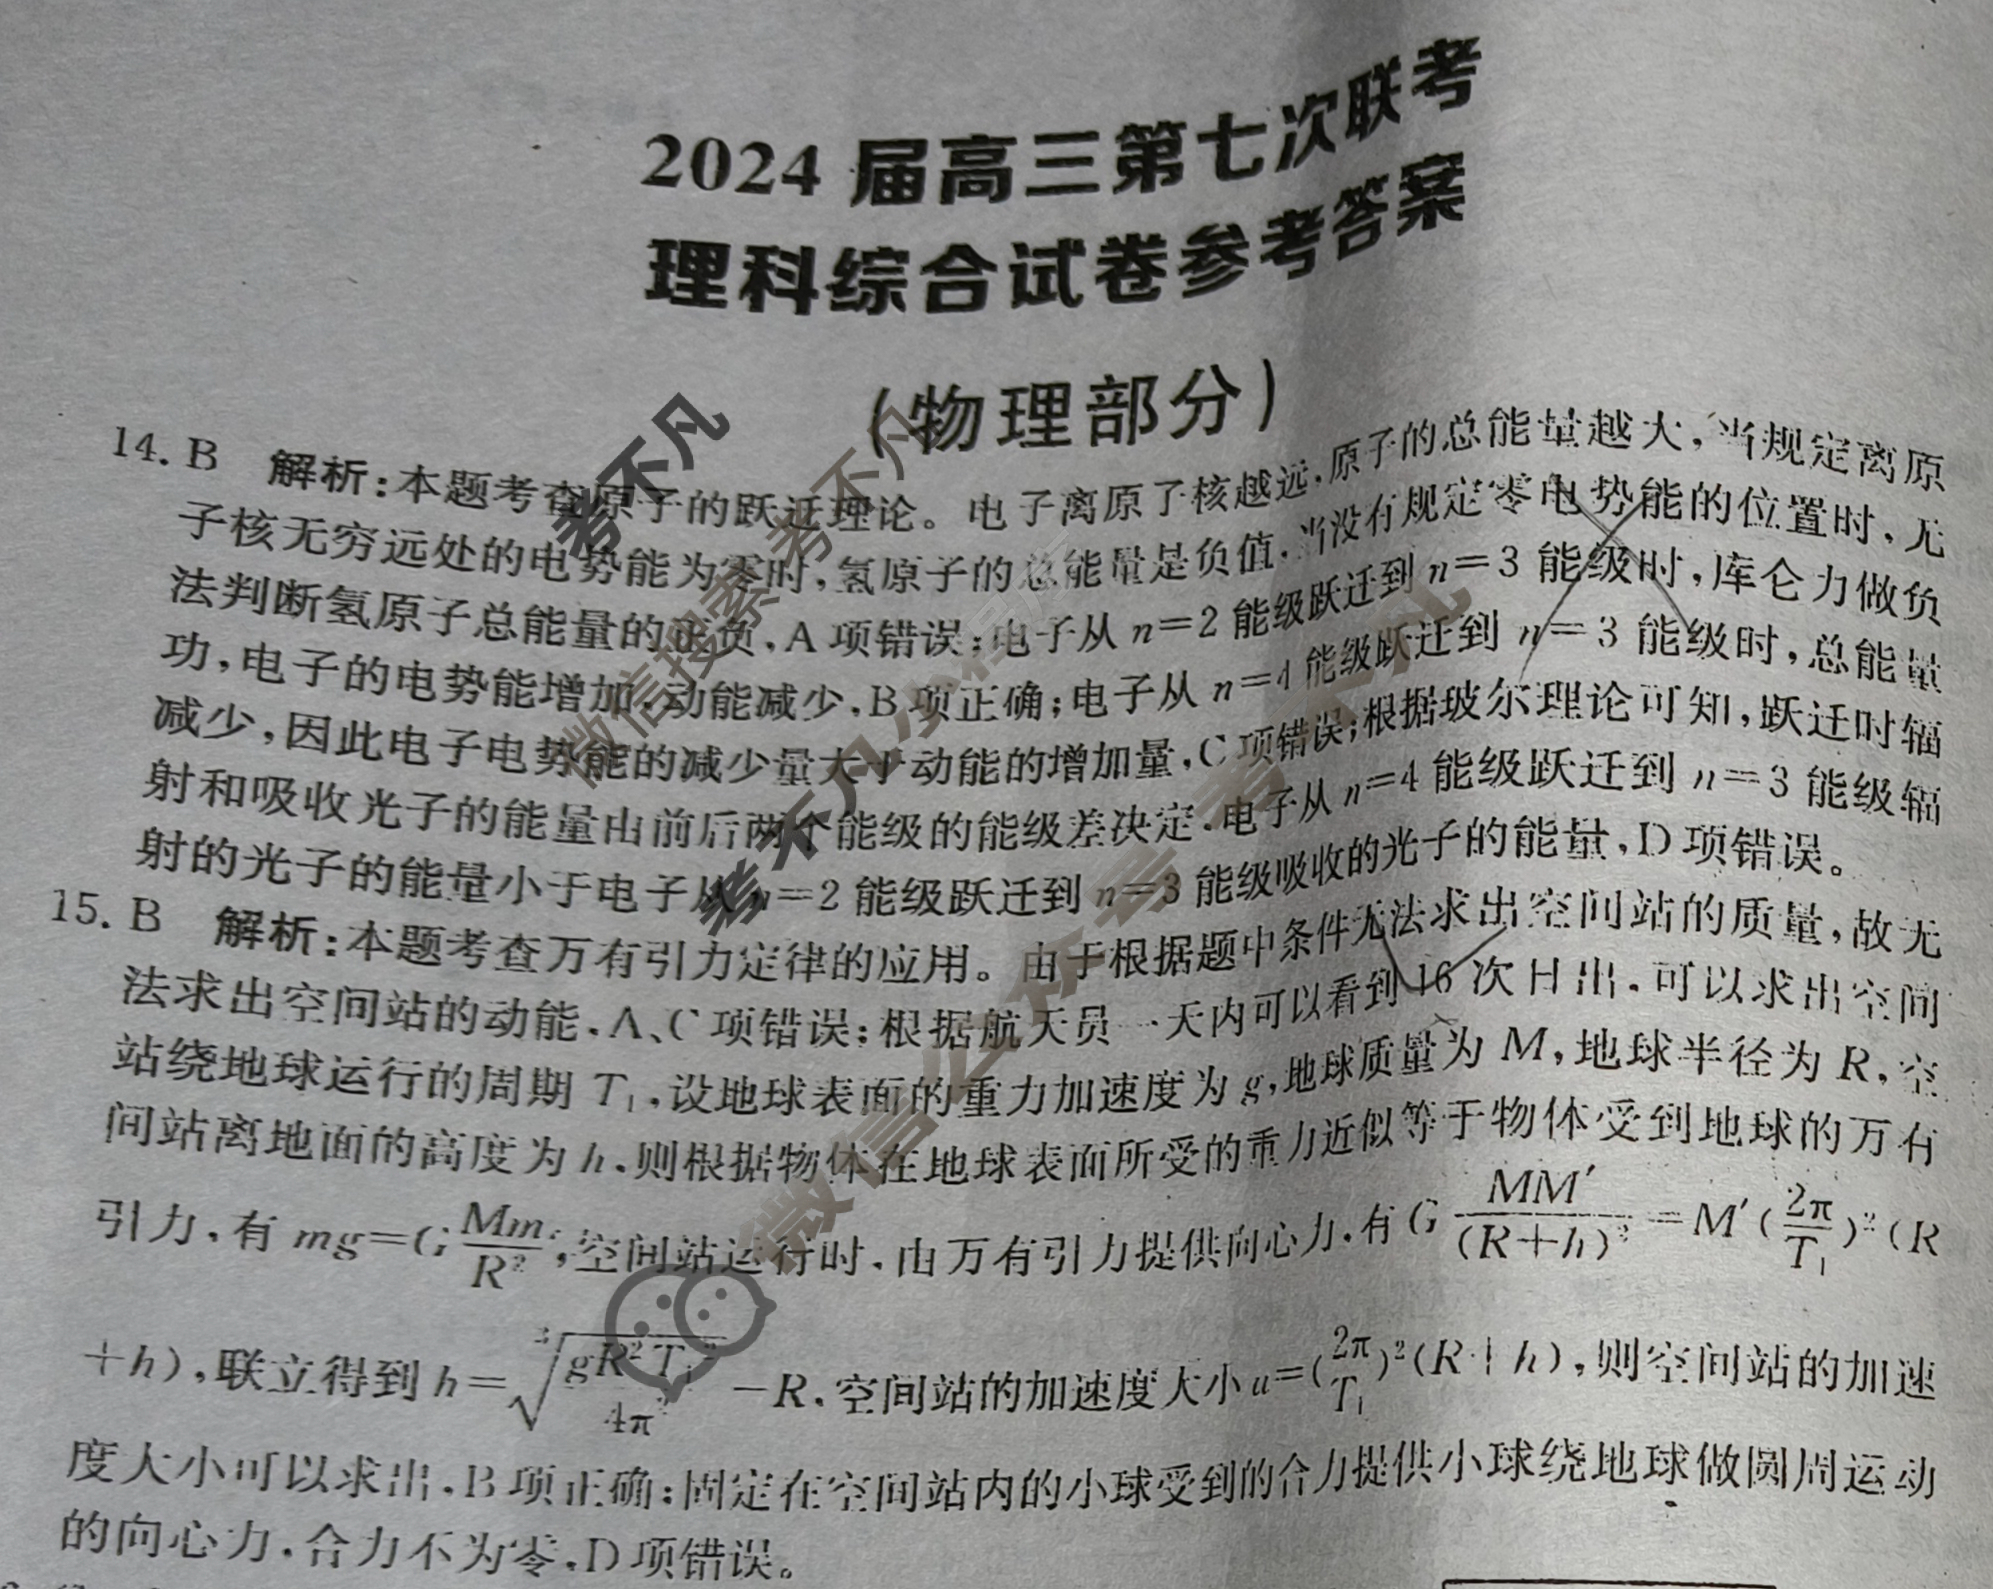 2024 届高三第七次联考
理科综合试卷参考答案
(物理部分)
14. B 解析:本题考查原子的跃迁理论。电子离原子核越远,原子的总能量越大,当规定离原
子核无穷远处的电势能为零时,氢原子的总能量是负值,当没有规定零电势能的位置时,无
法判断氢原子总能量的正负,A 项错误;电子从 n=2 能级跃迁到 n=3 能级时,库仑力做负
功,电子的电势能增加,动能减少,B 项正确;电子从 n=4 能级跃迁到 n=3 能级时,总能量
减少,因此电子电势能的减少量大于动能的增加量,C 项错误;根据玻尔理论可知,跃迁时辐
射和吸收光子的能量由前后两个能级的能级差决定,电子从 n=4 能级跃迁到 n=3 能级辐
射的光子的能量小于电子从 n=2 能级跃迁到 n=3 能级吸收的光子的能量,D 项错误。
15. B 解析:本题考查万有引力定律的应用。由于根据题中条件无法求出空间站的质量,故无
法求出空间站的动能,A、C 项错误;根据航天员一天内可以看到 16 次日出,可以求出空间
站绕地球运行的周期 T₁,设地球表面的重力加速度为 g,地球质量为 M,地球半径为 R,空
间站离地面的高度为 h,则根据物体在地球表面所受的重力近似等于物体受到地球的万有
引力,有 mg=G\frac{Mm}{R²};空间站运行时,由万有引力提供向心力,有 G\frac{MM′}{(R+h)²}=M′(\frac{2π}{T₁})²(R
+h),联立得到 h=\sqrt[3]{\frac{gR²T₁²}{4π²}}-R,空间站的加速度大小 a=(\frac{2π}{T₁})²(R+h),则空间站的加速
度大小可以求出,B 项正确;固定在空间站内的小球受到的合力提供小球绕地球做圆周运动
的向心力,合力不为零,D 项错误。
考不凡
微信搜索 考不凡
考不凡小程序
微信公众号 考不凡